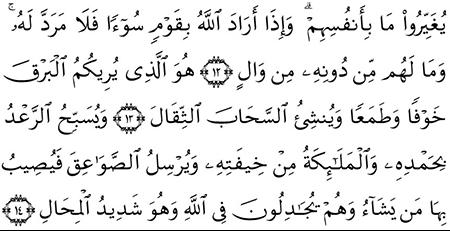 يُغَيِّرُواْ مَا بِأَنفُسِهِمْ ۗ وَإِذَا أَرَادَ ٱللَّهُ بِقَوْمٍ سُوٓءًا فَلَا مَرَدَّ لَهُۥ ۚ
وَمَا لَهُم مِّن دُونِهِۦ مِن وَالٍ ١٢ هُوَ ٱلَّذِى يُرِيكُمُ ٱلْبَرْقَ
خَوْفًا وَطَمَعًا وَيُنشِئُ ٱلسَّحَابَ ٱلثِّقَالَ ١٣ وَيُسَبِّحُ ٱلرَّعْدُ
بِحَمْدِهِۦ وَٱلْمَلَٰٓئِكَةُ مِنْ خِيفَتِهِۦ وَيُرْسِلُ ٱلصَّوَٰعِقَ فَيُصِيبُ
بِهَا مَن يَشَآءُ وَهُمْ يُجَٰدِلُونَ فِى ٱللَّهِ وَهُوَ شَدِيدُ ٱلْمِحَالِ ١٤